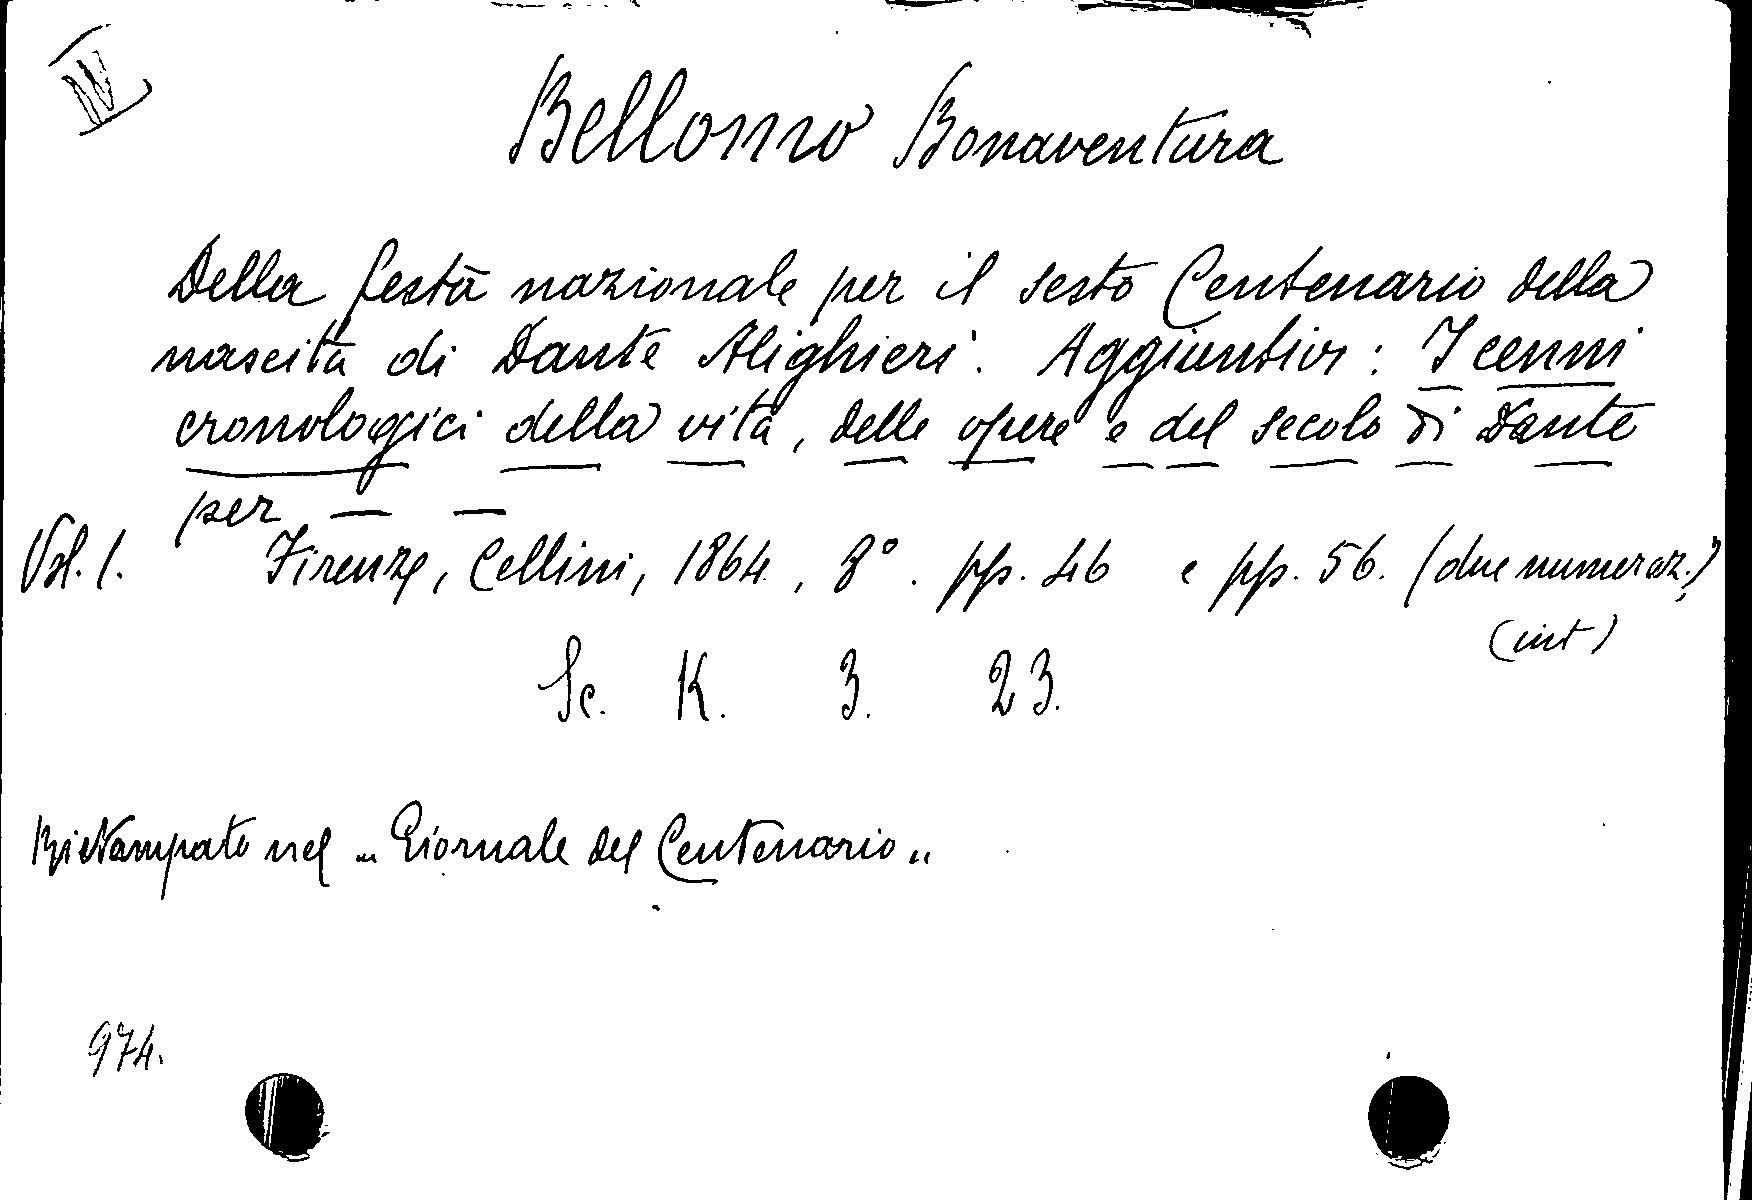 IV
Bellomo Bonaventura
Della festa nazionale per il sesto Centenario della
nascita di Dante Alighieri. Aggiuntivi: I cenni
cronologici della vita, delle opere e del secolo di Dante
per — —
Vol. 1. Firenze, Cellini, 1864, 8°. pp. 46 e pp. 56. (due numeraz.)
(int)
Sc. K. 3. 23.
Ristampato nel „Giornale del Centenario„
974.